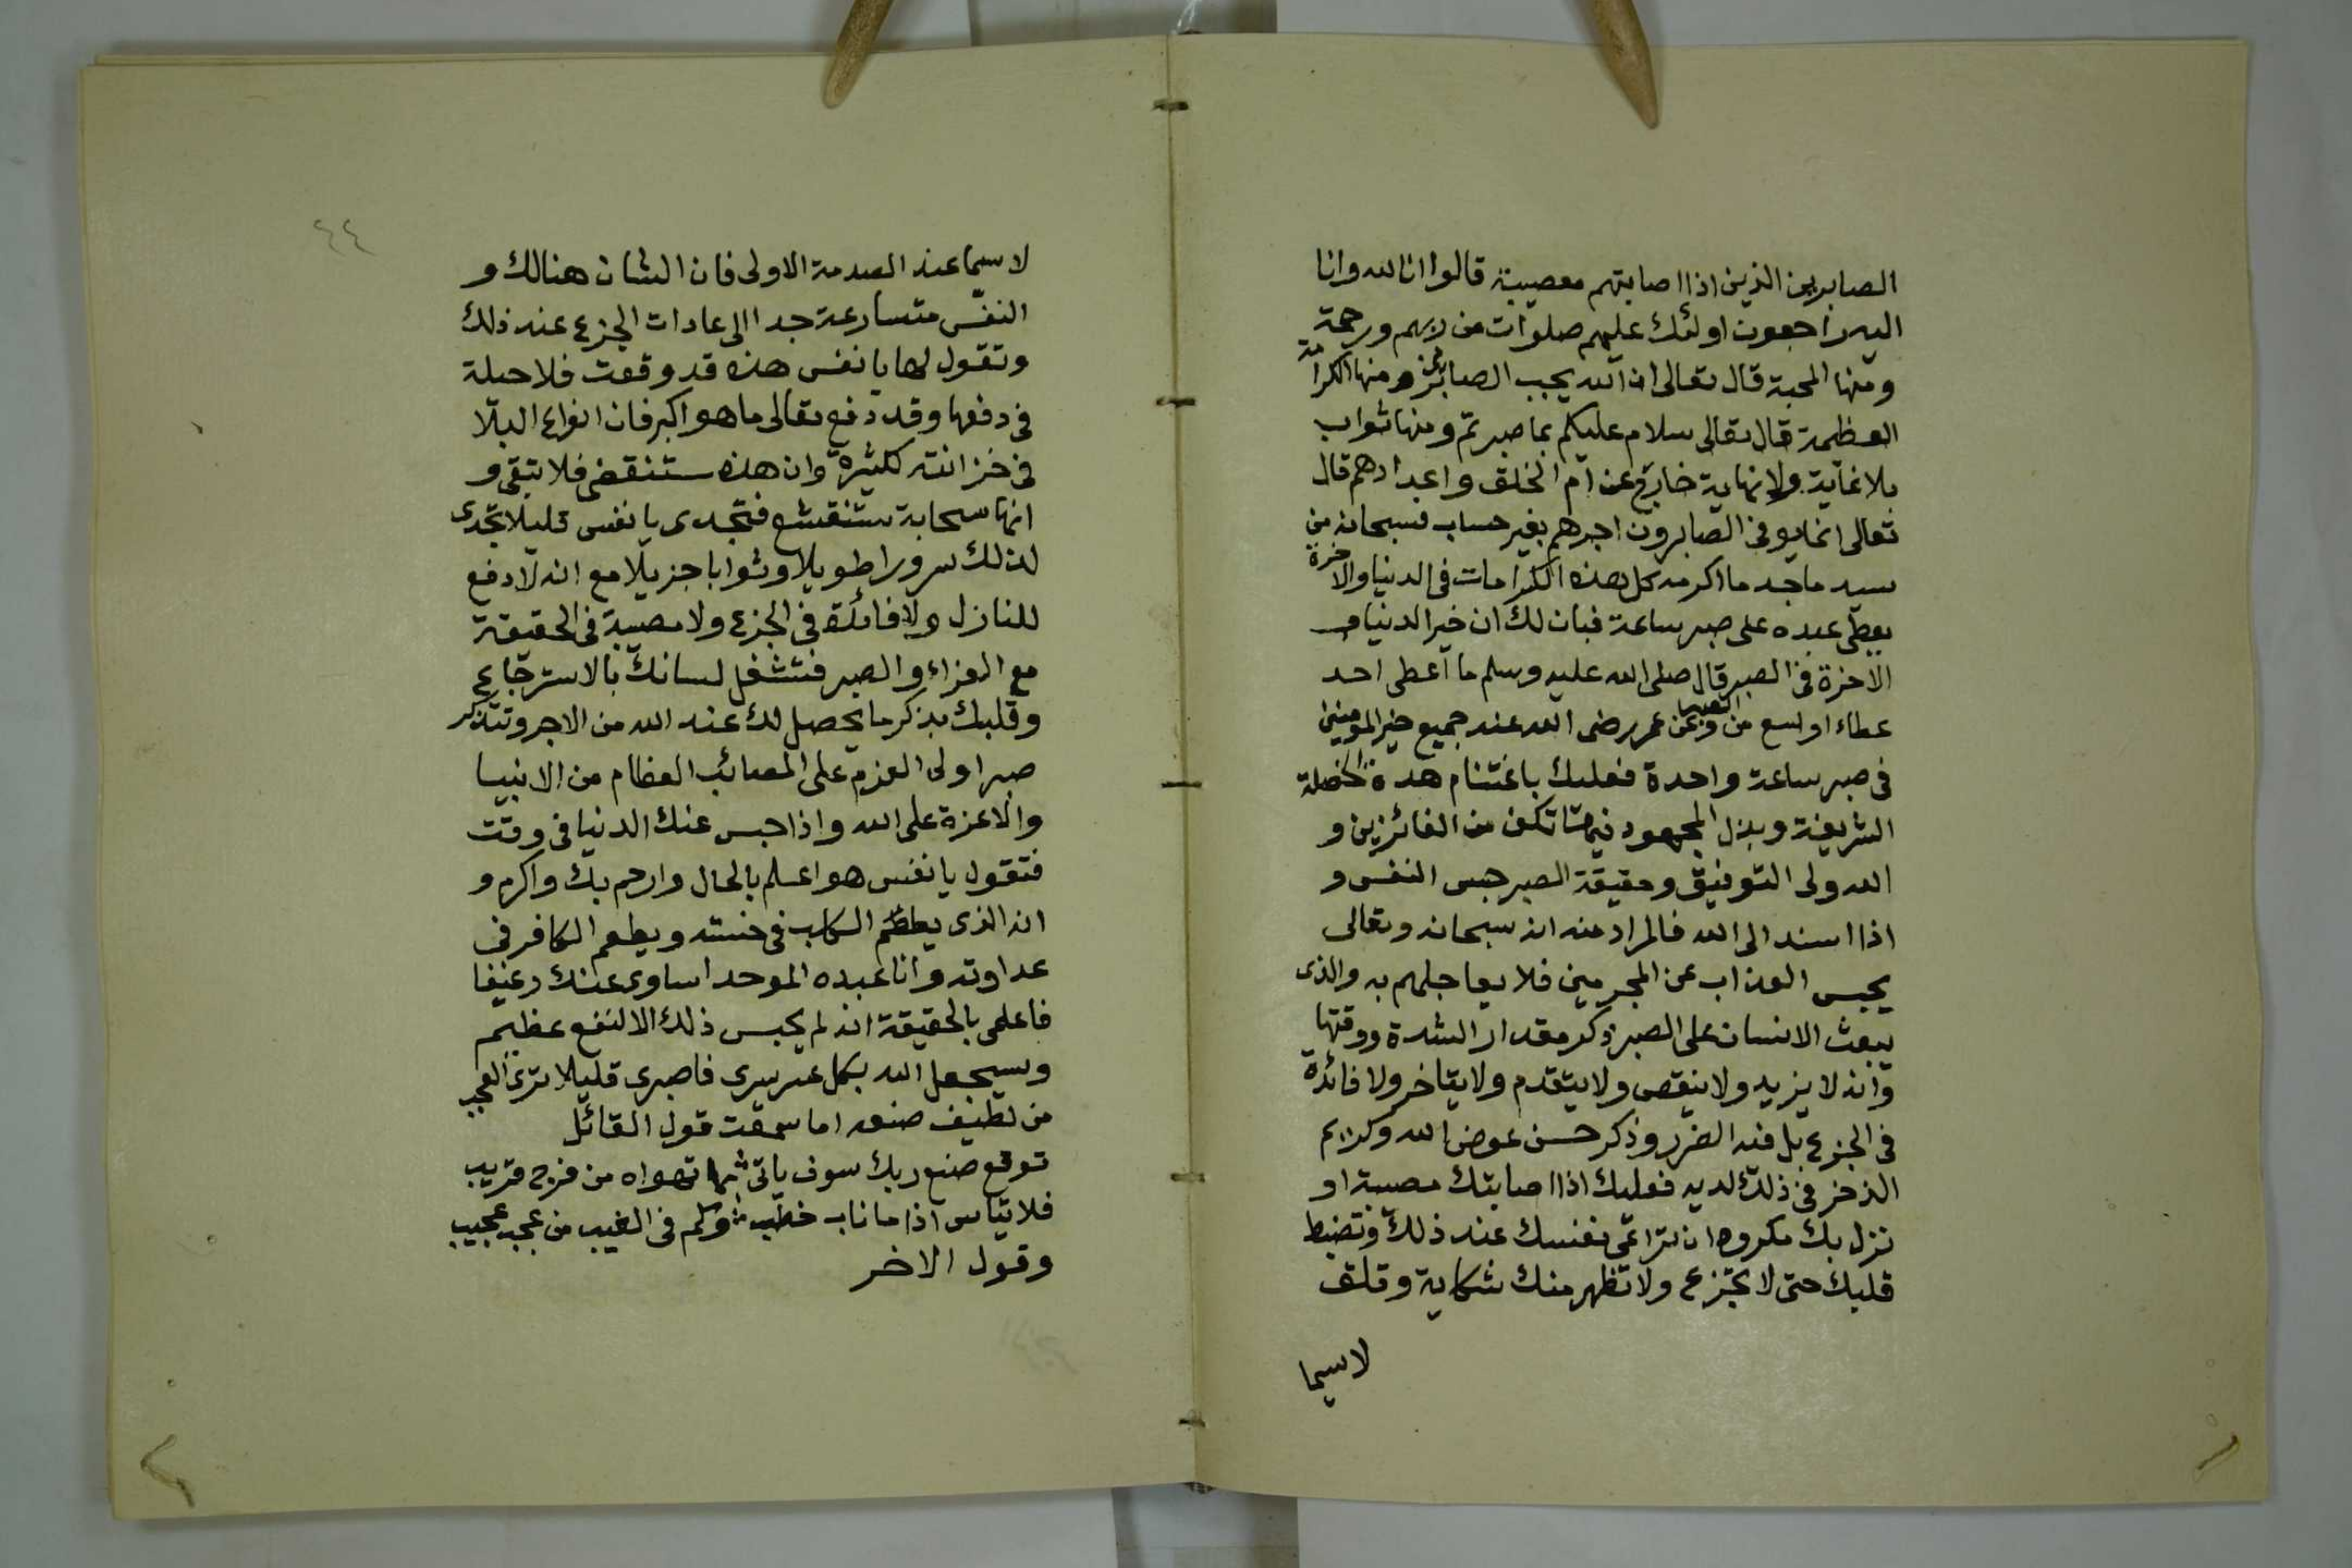 الصابرين الذين اذا اصابتهم مصيبة قالوا انا لله وانا
اليه راجعون اولئك عليهم صلوات من ربهم ورحمة
ومنها المحبة قال تعالى ان الله يحب الصابرين ومنها الكرامة
العظيمة قال تعالى سلام عليكم بما صبرتم ومنها ثواب
بلا غاية ولا نهاية خارج عن الخلق واعدادهم قال
تعالى انما يوفى الصابرون اجرهم بغير حساب فسبحانه من
سيد ماجد ما اكرمه كل هذه الكرامات فى الدنيا والاخرة
يعطى عبده على صبر ساعة فبان لك ان خير الدنيا و
الاخرة فى الصبر قال صلى الله عليه وسلم ما اعطى احد
عطاء اوسع من الصبر وعن عمر رضى الله عنه جميع خير المومنين
فى صبر ساعة واحدة فعليك باغتنام هذه الخصلة
الشريفة وبذل المجهود فيها تكن من الفائزين و
الله ولى التوفيق وحقيقة الصبر حبس النفس و
اذا اسند الى الله فالمراد منه انه سبحانه وتعالى
يحبس العذاب عن المجرمين فلا يعاجلهم به والذى
يبعث الانسان على الصبر ذكر مقدار الشدة ووقتها
وانه لا يزيد ولا ينقص ولا يتقدم ولا يتاخر ولا فائدة
فى الجزع بل فيه الضرر وذكر حسن عوض الله وكريم
الذخر فى ذلك لديه فعليك اذا اصابتك مصيبة او
نزل بك مكروه ان تراعى نفسك عند ذلك وتضبط
قلبك حتى لا تجزع ولا تظهر منك شكاية وقلق
لاسيما
٤٤
لاسيما عند الصدمة الاولى فان الشان هنالك و
النفس متسارعة جدا الى عادات الجزع عند ذلك
وتقول لها يا نفس هذه قد وقعت فلا حيلة
فى دفعها وقد دفع تعالى ما هو اكبر فان انواع البلا
فى خزانته كثيرة وان هذه ستنقضى فلا تبقى و
انها سحابة ستنقشع فتجلدى يا نفس قليلا تجدى
لذلك سرورا طويلا وثوابا جزيلا مع انه لا دفع
للنازل ولا فائدة فى الجزع ولا مصيبة فى الحقيقة
مع العزاء والصبر فتشغل لسانك بالاسترجاع
وقلبك بذكر ما يحصل لك عند الله من الاجر وتتذكر
صبر اولى العزم على المصائب العظام من الانبيا
والاعزة على الله واذا حبس عنك الدنيا فى وقت
فتقول يا نفس هو اعلم بالحال وارحم بك واكرم و
انه الذى يطعم الكلب فى خسته ويطعم الكافر فى
عداوته وانا عبده الموحد اساوى عندك رغيفا
فاعلمى بالحقيقة انه لم يحبس ذلك الا لنفع عظيم
وسيجعل الله بكل عسر يسرى فاصبرى قليلا ترى العجب
من لطيف صنعه اما سمعت قول القائل
توقع صنع ربك سوف ياتى بما تهواه من فرج قريب
فلا تياس اذا ما ناب خطب وكم فى الغيب من عجب عجيب
وقول الاخر